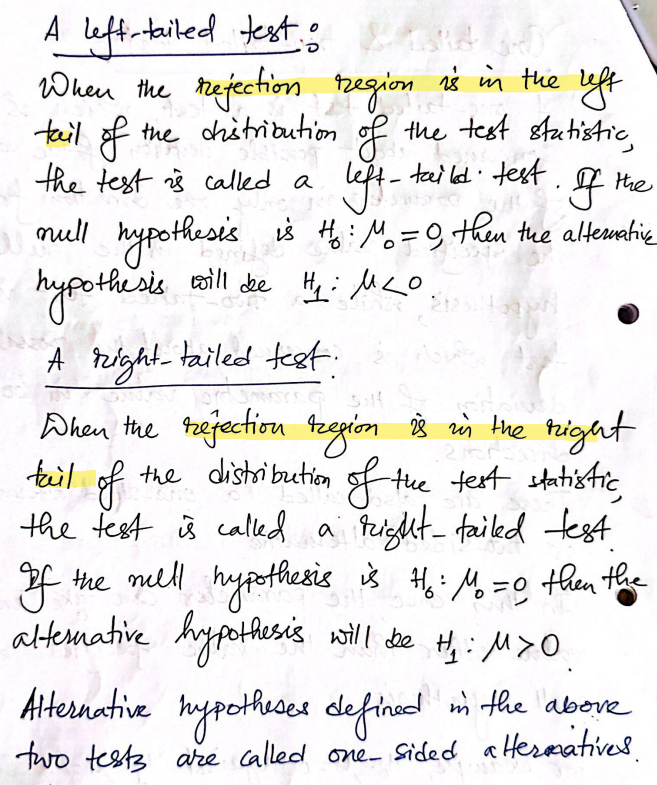 A left-tailed test:
When the rejection region is in the left
tail of the distribution of the test statistic,
the test is called a left-taild test. If the
null hypothesis is H₀: M₀=0, then the alternative
hypothesis will be H₁: M<0.
A right-tailed test:
When the rejection region is in the right
tail of the distribution of the test statistic,
the test is called a right-tailed test.
If the null hypothesis is H₀: M₀=0 then the
alternative hypothesis will be H₁: M>0
Alternative hypotheses defined in the above
two tests are called one-sided alternatives.